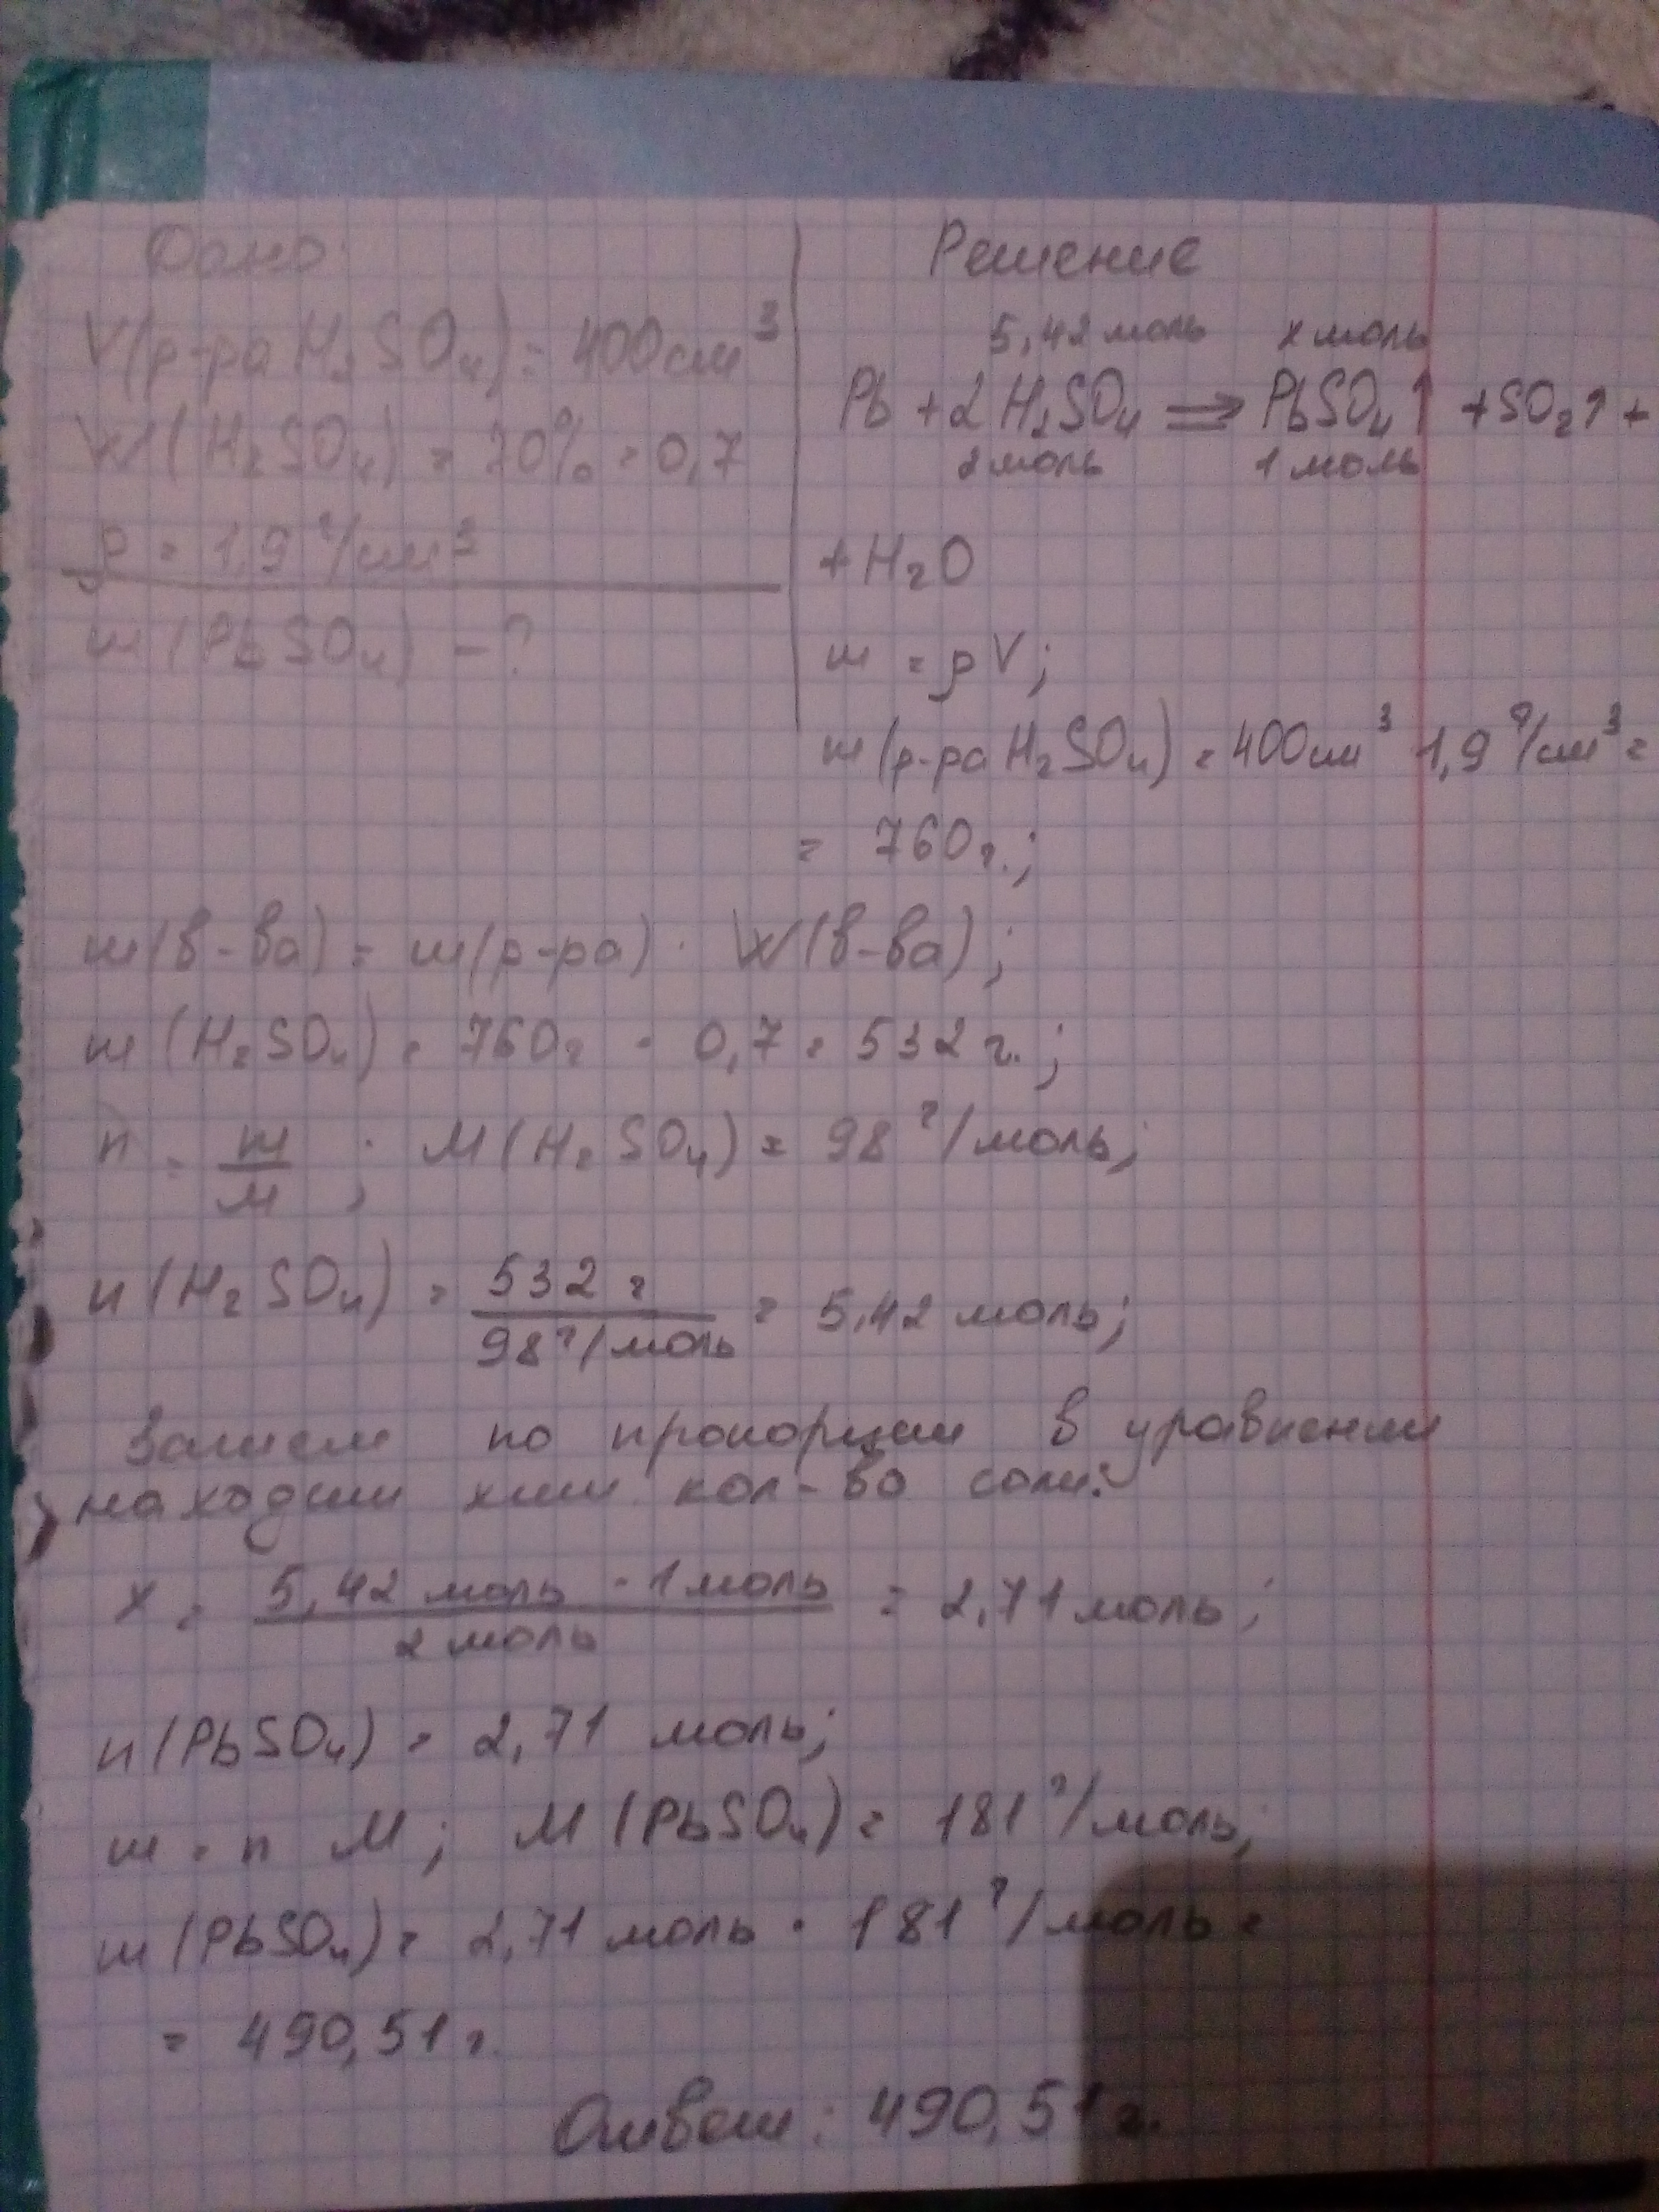 Дано:
V(р-ра H₂SO₄) = 400см³
W(H₂SO₄) = 70% = 0,7
ρ = 1,9 г/см³
m(PbSO₄) - ?
Решение
5,42 моль x моль
Pb + 2H₂SO₄ ⇒ PbSO₄↑ + SO₂↑ +
2 моль 1 моль
+ H₂O
m = ρV;
m(р-ра H₂SO₄) = 400см³ 1,9 г/см³ =
= 760г.;
m(в-ва) = m(р-ра) · W(в-ва);
m(H₂SO₄) = 760г · 0,7 = 532 г.;
n = m/M; M(H₂SO₄) = 98 г/моль;
n(H₂SO₄) = 532 г / 98 г/моль = 5,42 моль;
по пропорции в уравнении
находим хим кол-во соли:
x = 5,42 моль · 1 моль / 2 моль = 2,71 моль;
n(PbSO₄) = 2,71 моль;
m = n M; M(PbSO₄) = 181 г/моль;
m(PbSO₄) = 2,71 моль · 181 г/моль =
= 490,51 г.
Ответ: 490,51 г.